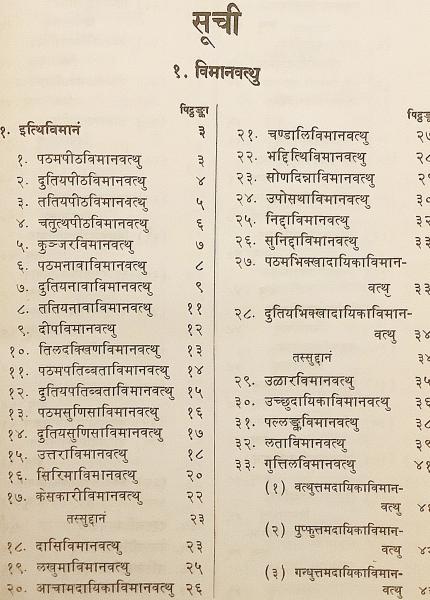 सूची
१. विमानवत्थु
पिट्ठङ्का
१. इत्थिविमानं ३
१. पठमपीठविमानवत्थु ३
२. दुतियपीठविमानवत्थु ४
३. ततियपीठविमानवत्थु ५
४. चतुत्थपीठविमानवत्थु ६
५. कुञ्जरविमानवत्थु ७
६. पठमनावाविमानवत्थु ८
७. दुतियनावाविमानवत्थु ९
८. ततियनावाविमानवत्थु ११
९. दीपविमानवत्थु १२
१०. तिलदक्खिणविमानवत्थु १३
११. पठमपतिब्बताविमानवत्थु १४
१२. दुतियपतिब्बताविमानवत्थु १५
१३. पठमसुणिसाविमानवत्थु १६
१४. दुतियसुणिसाविमानवत्थु १७
१५. उत्तराविमानवत्थु १८
१६. सिरिमाविमानवत्थु २०
१७. केसकारीविमानवत्थु २२
तस्सुद्दानं २३
१८. दासिविमानवत्थु २३
१९. लखुमाविमानवत्थु २५
२०. आचामदायिकाविमानवत्थु २६
२१. चण्डालिविमानवत्थु
२२. भद्दित्थिविमानवत्थु
२३. सोणदिन्नाविमानवत्थु
२४. उपोसथाविमानवत्थु
२५. निद्दाविमानवत्थु
२६. सुनिद्दाविमानवत्थु
२७. पठमभिक्खादायिकाविमान-
वत्थु ३३
२८. दुतियभिक्खादायिकाविमान-
वत्थु
तस्सुद्दानं
२९. उळारविमानवत्थु
३०. उच्छुदायिकाविमानवत्थु
३१. पल्लङ्कविमानवत्थु
३२. लताविमानवत्थु
३३. गुत्तिलविमानवत्थु
(१) वत्थुत्तमदायिकाविमान-
वत्थु
(२) पुप्फुत्तमदायिकाविमान-
वत्थु
(३) गन्धुत्तमदायिकाविमान-
वत्थु